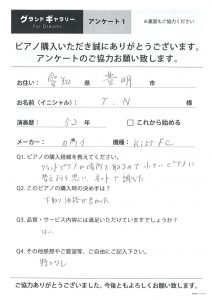 グランドギャラリー
For Dreamers
アンケート1
※裏面もご協力ください
ピアノ購入いただき誠にありがとうございます。
アンケートのご協力お願い致します。
お住い： 愛知 県 豊明 市
お名前(イニシャル)： T．N 様
演奏歴： 52年 □これから始める
メーカー： カワイ 機種： K157FC
Q1. ピアノ購入経緯を教えてください。
グランドピアノが場所を取るので小さいピアノに
替えようと思い、ネットで調べた
Q2. このピアノの購入時の決め手は？
下取り価格が高かった
Q3. 品質・サービス内容には満足いただけていますでしょうか？
はい
Q4. その他感想やご要望等、ご自由にご記入下さい。
特になし
ご協力ありがとうございました。今後ともよろしくお願い致します。